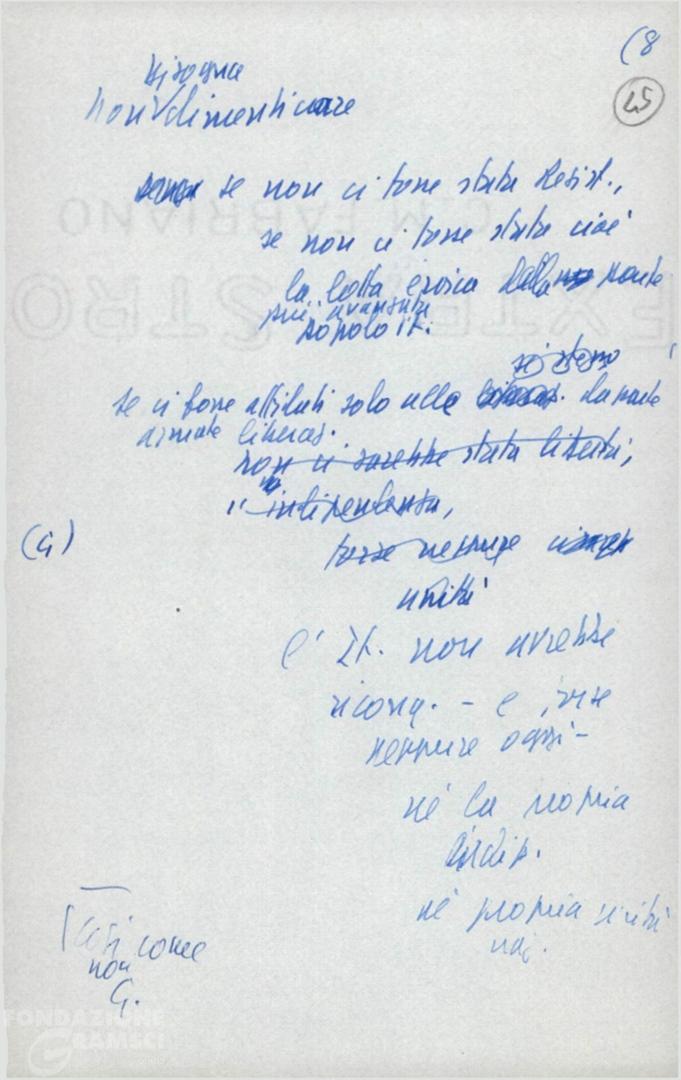 (8
45
bisogna
non dimenticare
se non ci fosse stata Resist.,
se non ci fosse stata cioè
la lotta eroica della parte
più avanzata
popolo it.
se stesso
se ci fosse affidati solo alle da parte
armate liberaz.
non ci sarebbe stata libertà,
" indipendenza,
forse neppure
unità
(G)
l'It. non avrebbe
riconq. - e forse
neppure oggi -
nè la propria
indip.
nè propria unità
naz.
così come
non
G.
FONDAZIONE
GRAMSCI
C.M. FABRIANO
EXTRA STRO